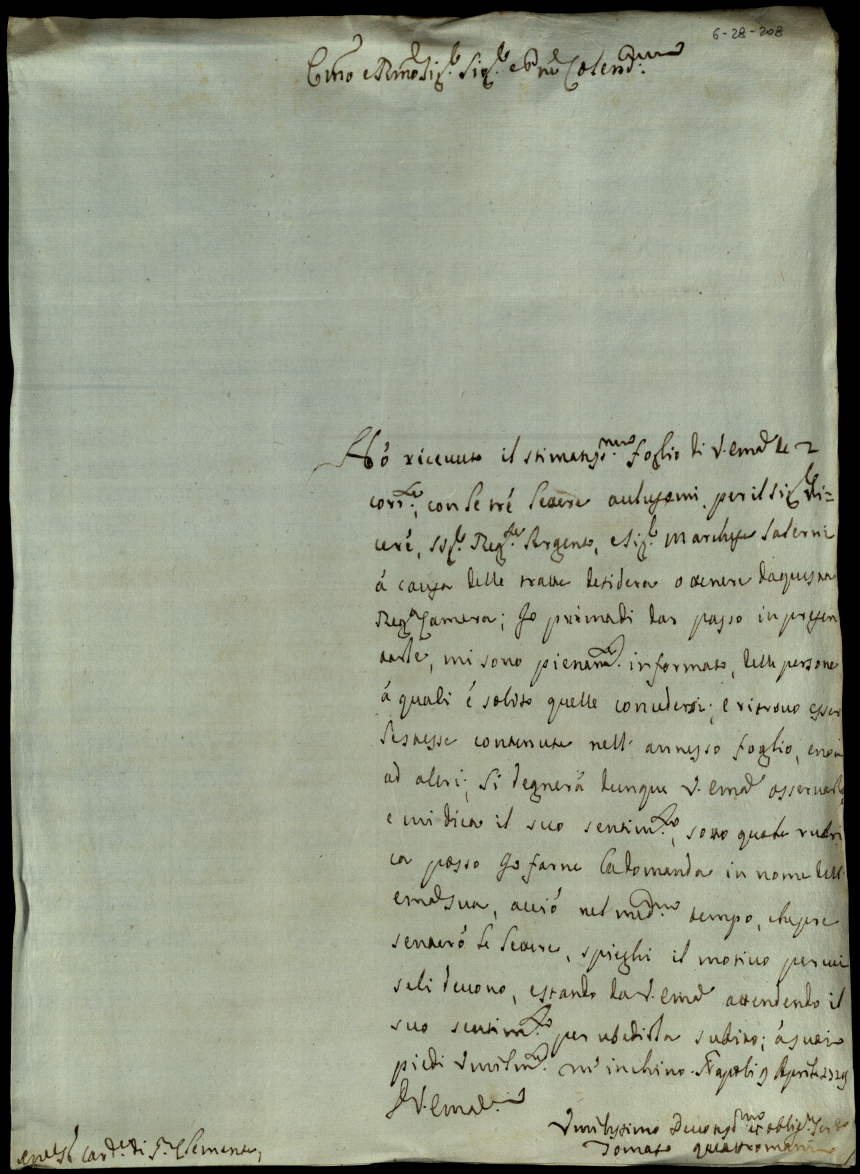 6-28-208
Em̃o e Rm̃o Sig.re Sig.re e Pñe Colend.mo
Hó riceuuto il stimatiss.mo foglio di V. Em.a de 2
corr.te, con le tré lettere per il Sig.re Vi=
ceré, Sig.r Reg.te Argento, e Sig.r Marchese Salerni
á causa delle tratte desidera ottenere da questa
Reg.a Camera; Io prima di dar passo in presen
tarle, mi sono pienam.te informato, delle persone
á quali é solito quelle concedersi; e ritrouo esser
l'istesse contenute nell'annesso foglio, e non
ad altri; Si degnerá dunque V. Em.a osseruarlo
e mi dica il suo sentim.to, sotto quale rubri
ca posso Io farne la domanda in nome dell'
Em.a Sua, acció nel med.mo tempo, che pre
senteró le lettere, spieghi il motiuo per cui
se li deuono, e stando da V. Em.a attendendo il
suo sentim.to per ubidirla subito; á suoi
piedi umilm.te m'inchino. Napoli 9 Aprile
D. V. Em.a
Vmilissimo Deuotiss.mo et oblig.mo Ser.re
Tomaso Quattromani
Card.le di S. Clemente